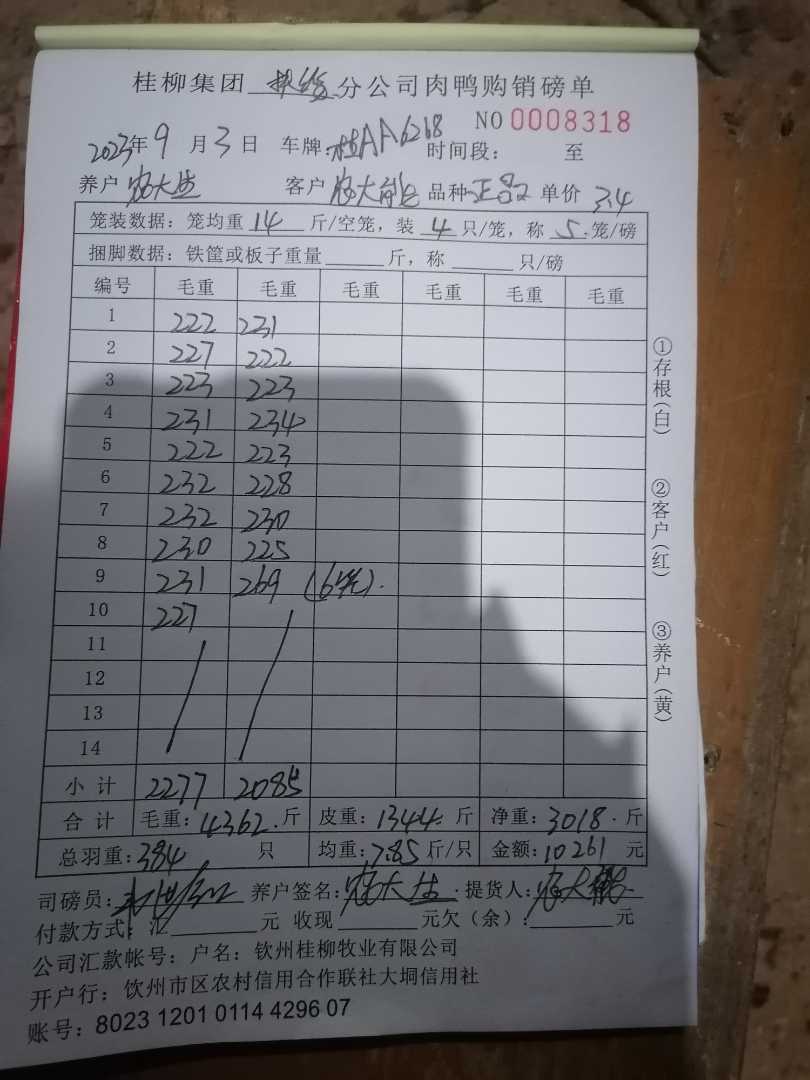 桂柳集团 分公司肉鸭购销磅单
NO 0008318
2023年 9 月 3 日 车牌: 桂AA6268 时间段: 至
养户 农大生 客户 农大能 品种 正品 单价 3.4
笼装数据: 笼均重 14 斤/空笼, 装 4 只/笼, 称 5 笼/磅
捆脚数据: 铁筐或板子重量 斤, 称 只/磅
编号 毛重 毛重 毛重 毛重 毛重 毛重
1 222 231
2 227 222
3 223 223
4 231 234
5 222 223
6 232 228
7 232 230
8 230 225
9 231 269 (6笼).
10 227
11
12
13
14
小计 2277 2085
合计 毛重: 4362. 斤 皮重: 1344. 斤 净重: 3018. 斤
总羽重: 384 只 均重: 7.85 斤/只 金额: 10261 元
司磅员: 养户签名: 农大生 提货人: 农大能
付款方式: 汇 元 收现 元欠(余): 元
公司汇款帐号: 户名: 钦州桂柳牧业有限公司
开户行: 饮州市区农村信用合作联社大垌信用社
账号: 8023 1201 0114 4296 07
①存根(白)
②客户(红)
③养户(黄)